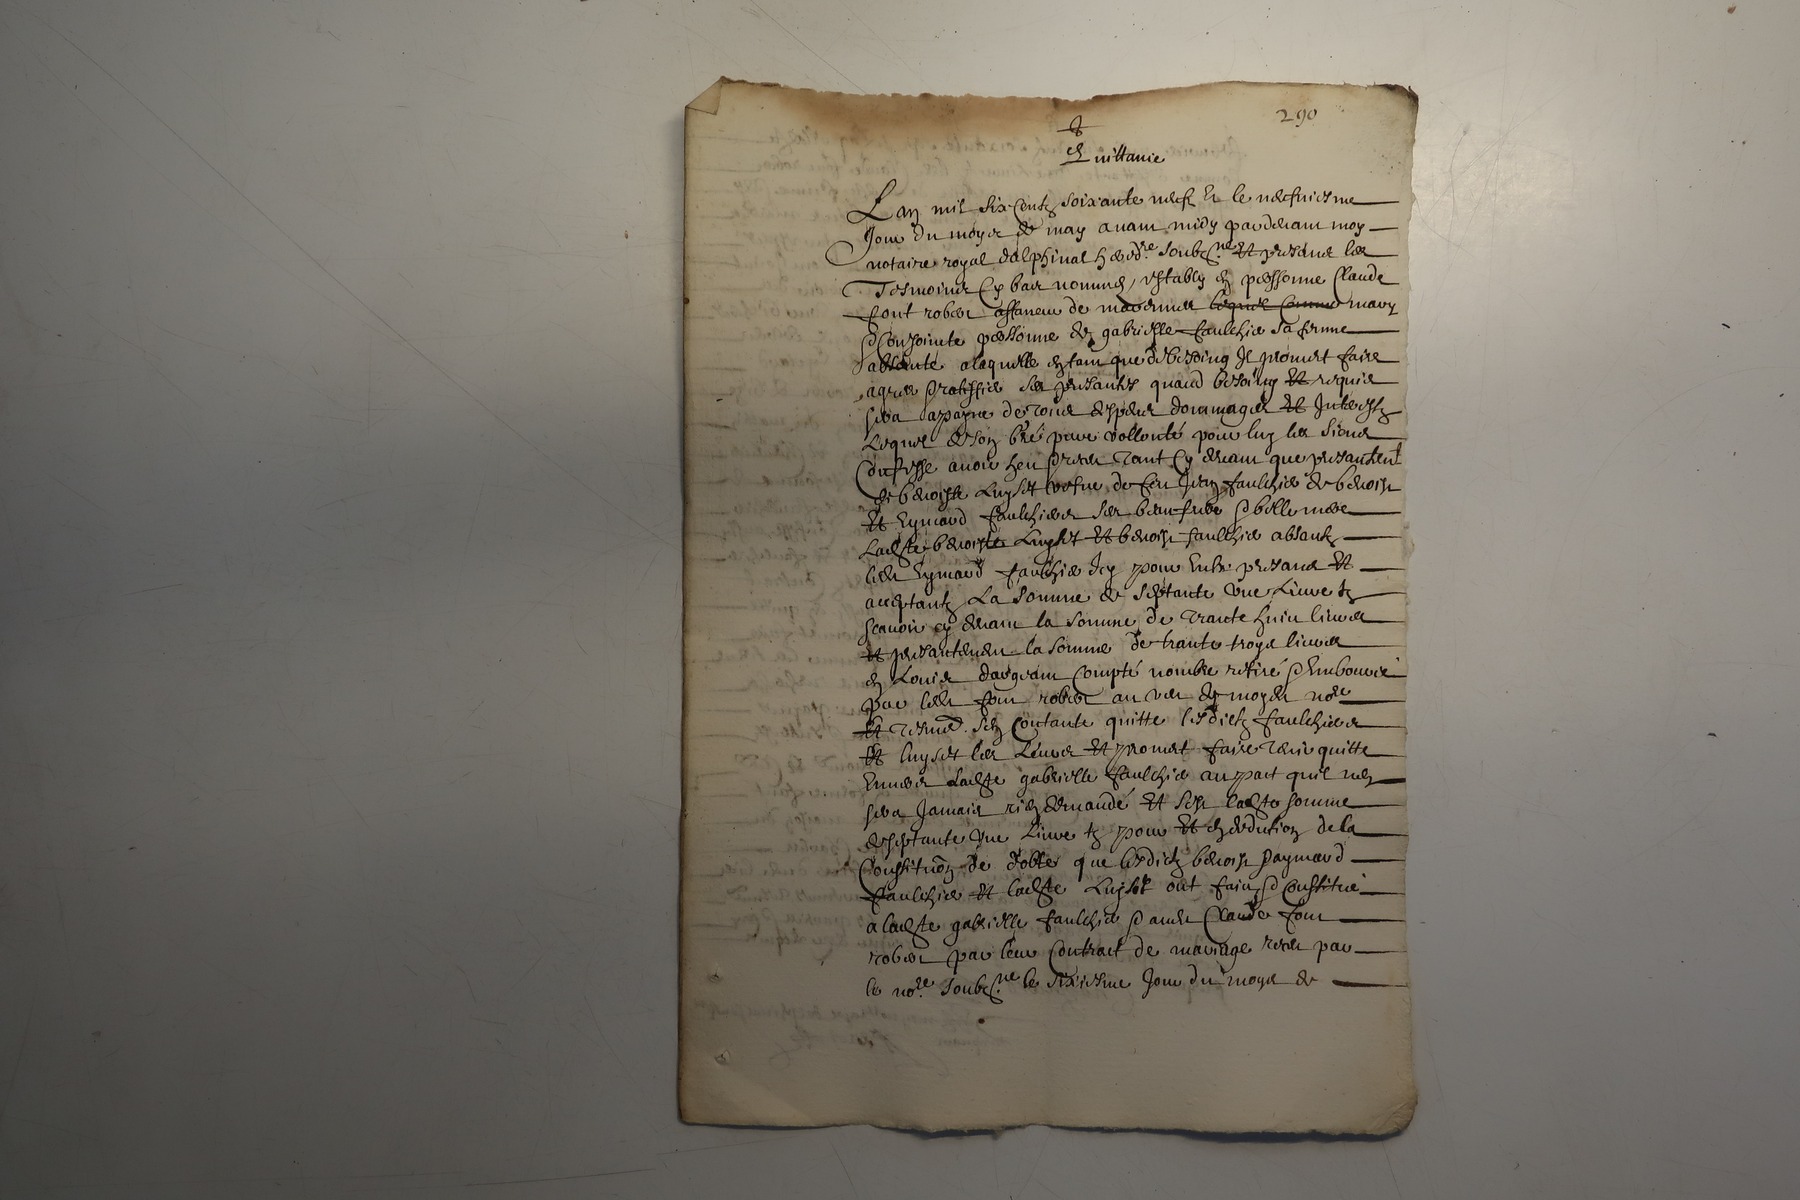 290
Quittance
Lan mil six centz soixante neuf et le neufviesme
Jour du moys de may avant midy pardevant moy
notaire royal dalphinal hered.re soubz.ne et presance les
Tesmoins cy bas nommés, establys en personne Claude
font robert affaneur de mary
conjointe personne de gabrielle faulchier sa femme
absante a laquelle en tant que de besoing Il promet faire
agreer ratiffier les presantes quand besoing et requis
sera a payne de tous despens dommages et Interestz
Lequel de son gré pure vollonté pour luy les siens
Confesse avoir heu receu tant cy devant que presantem.t
de benoiste Luyset vefve de feu Jean faulchier de benoist
et Eymard faulchier ses beaufrere belle mere
Ladite benoiste Luyset et benoist faulchier absantz
led. Eymard faulchier Icy pour Eulx presans et
acceptantz La somme de septante une Livre tz
scavoir cy devant la somme de trante huict livres
et presantement la somme de trante troys livres
en Louis dargeant Compté nombre retiré Embourcé
par led. font robert au veu de moyd. no.re
et tesmo. sen Contante quitte lesdictz faulchier
et luyset les Leurs et promet faire tenir quitte
Envers Ladite gabrielle faulchier au pact quil nen
sera Jamais rien demandé et sest ladite somme
de septante une Livre tz pour et en deduction de la
Constitu.on de dotte que lesdictz benoist eaymard
faulchier et ladite Luyset ont faict Constitué
a ladite gabrielle faulchier aud. Claude font
robert par leur Contract de mariage receu par
le no.re soubz.ne le sixiesme Jour du moys de